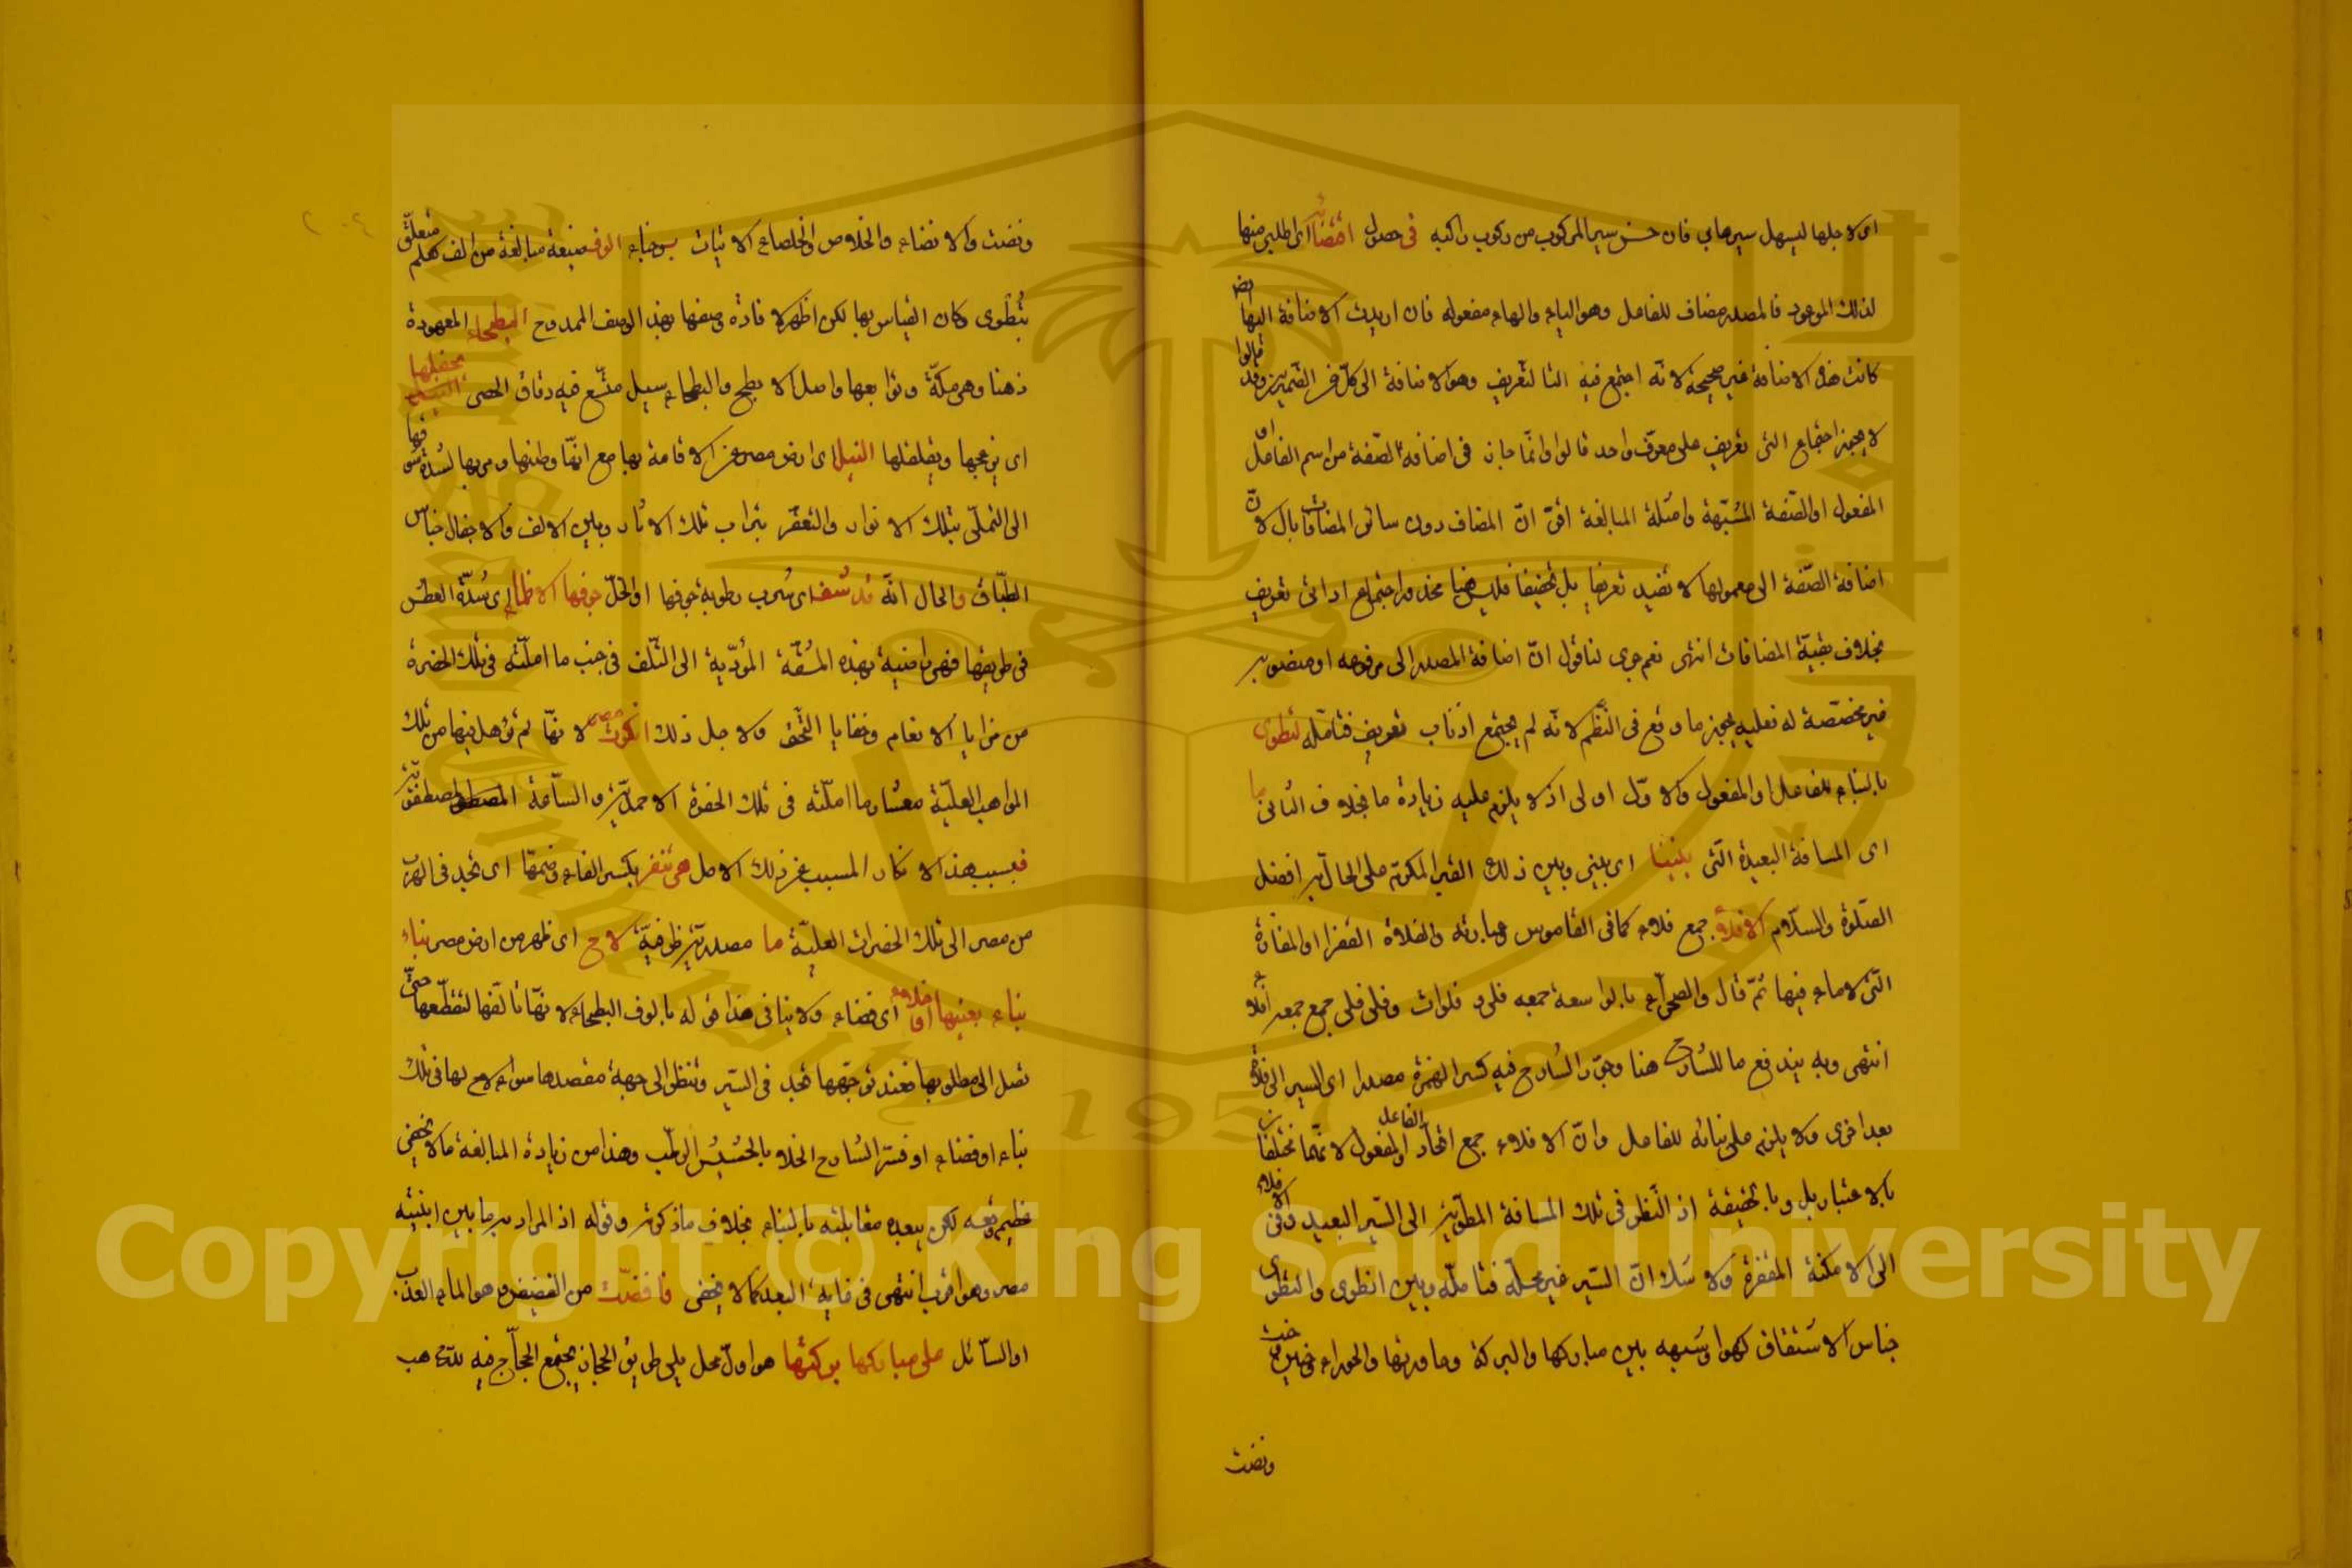 اى لاجلها ليسهل سيرها بي فان حسن سير المركوب من ركوب راكبه فى حصول اقتضائى اى طلبى منها
لذلك الموعود فالمصدر مضاف للفاعل وهو الياء والهاء مفعوله فان اريدت الاضافة اليها
كانت هذه الاضافة غير صحيحة لانه اجتمع فيه التا لتعريف وهو الاضافة الى كل من الضميرين وقد قالوا
لا يجوز اجتماع التى تعريف على معرف واحد قالوا وانما جاز فى اضافة الصفة من اسم الفاعل او
المفعول او الصفة المشبهة وامثلة المبالغة اقتران المضاف دون سائر المضافات بال لان
اضافة الصفة الى معمولها لا تفيد تعريفا بل تخفيفا فليس هنا محذور اجتماع اداتى تعريف
بخلاف بقية المضافات انتهى نعم جرى لنا قول ان اضافة المصدر الى مرفوعه او منصوبه
غير مخصصة له فعليه يجوز ما وقع فى النظم لانه لم يجتمع اداتا تعريف فتامله لتطوى
بالبناء للفاعل او المفعول والاول اولى اذ لا يلزم عليه زيادة ما بخلاف الثانى ما
اى المسافة البعيدة التى بيننا اى بينى وبين ذلك القبر المكرم على الحال به افضل
الصلوة والسلام الافلاء جمع فلاة كما فى القاموس وعبارته والفلاة القفر او المفازة
التى لا ماء فيها ثم قال والصحراء بالواسعة جمعه فلا و فلوات وفلى فلى جمع جمعه افلاء
انتهى وبه يندفع ما للشارح هنا وجوز الشارح فيه كسر الهمزة مصدرا اى السير الى فلاة
بعد اخرى ولا يلزم على بنائه للفاعل وان الافلاء جمع اتحاد الفاعل والمفعول لانهما مختلفان
بالاعتبار بل وبالحقيقة اذ النظر فى تلك المسافة المطوية الى السير البعيد وفى الافلاء
الى الامكنة المقفرة ولا شك ان السير غير محله فتامله وبين انطوى والتطوى
جناس الاشتقاق كهوا وشبهه بين مباركها والبركة وحاوربها والحوراء وخبت
ونضت
ونضت والانضاء والخلاص والخلصاء الاتيات بوضاء الوف صيغة مبالغة من الف كعلم متعلق
بتطوى وكان القياس بها لكن اظهر لافادة وصفها بهذا الوصف الممدوح البطحاء المعهودة
ذهنا وهى مكة وتوابعها واصل الابطح والبطحاء سيل متسع فيه دقاق الحصى يجفلها
اى يزعجها ويقلقلها النيل اى ارض مصر عن الاقامة بها مع انها وطنها ومربها لشدة شوقها
الى التملى بتلك الانوار والتعفر بتراب تلك الاثار وبين الالف والاجفال جناس
الطباق والحال انه قد شف اى شرب رطوبة جوفها او انحل جوفها الاظماء اى شدة العطش
فى طريقها فهى راضية بهذه المشقة المؤدية الى التلف فى جنب ما املته فى تلك الحضرة
من مزايا الانعام وخفايا التحف ولاجل ذلك انكرت مصر لانها لم تؤهل فيها من تلك
المواهب العلية معشار ما املته فى تلك الحضرة الاحمدية والساحة المصطفوية
فبسبب هذا الانكار المسبب عن ذلك الامل هى تنفر بكسر الفاء وضمها اى تجد فى الهرب
من مصر الى تلك الحضرات العلية ما مصدرية ظرفية لاح اى ظهر من ارض مصر بناء
بناء بعينها او خلاء اى فضاء ولا ينافى هذا قوله بالوف البطحاء لانها تالفها لتقطعها حتى
تصل الى مطلوبها فعند توجهها تجد فى السير وتنظر الى جهة مقصدها سواء لاح لها فى تلك
بناء او فضاء او فسر الشارح الخلاء بالحشيش الرطب وهذا من زيادة المبالغة ما لا يخفى
عظيم وقعه لكن يبعده مقابلته بالبناء بخلاف ما ذكرته وقوله اذ المراد به ما بين ابنية
مصر وهو اقرب انتهى فى غاية البعد كما لا يخفى فافضت من الفضيض وهو الماء العذب
او السائل على مباركها بركتها هو اول محل يلى طريق الحجاز يجتمع الحجاج فيه للذهاب
Copyright © King Saud University
1957